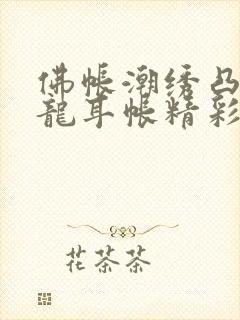 佛帐潮绣凸
龍耳帐精彩
花茶茶